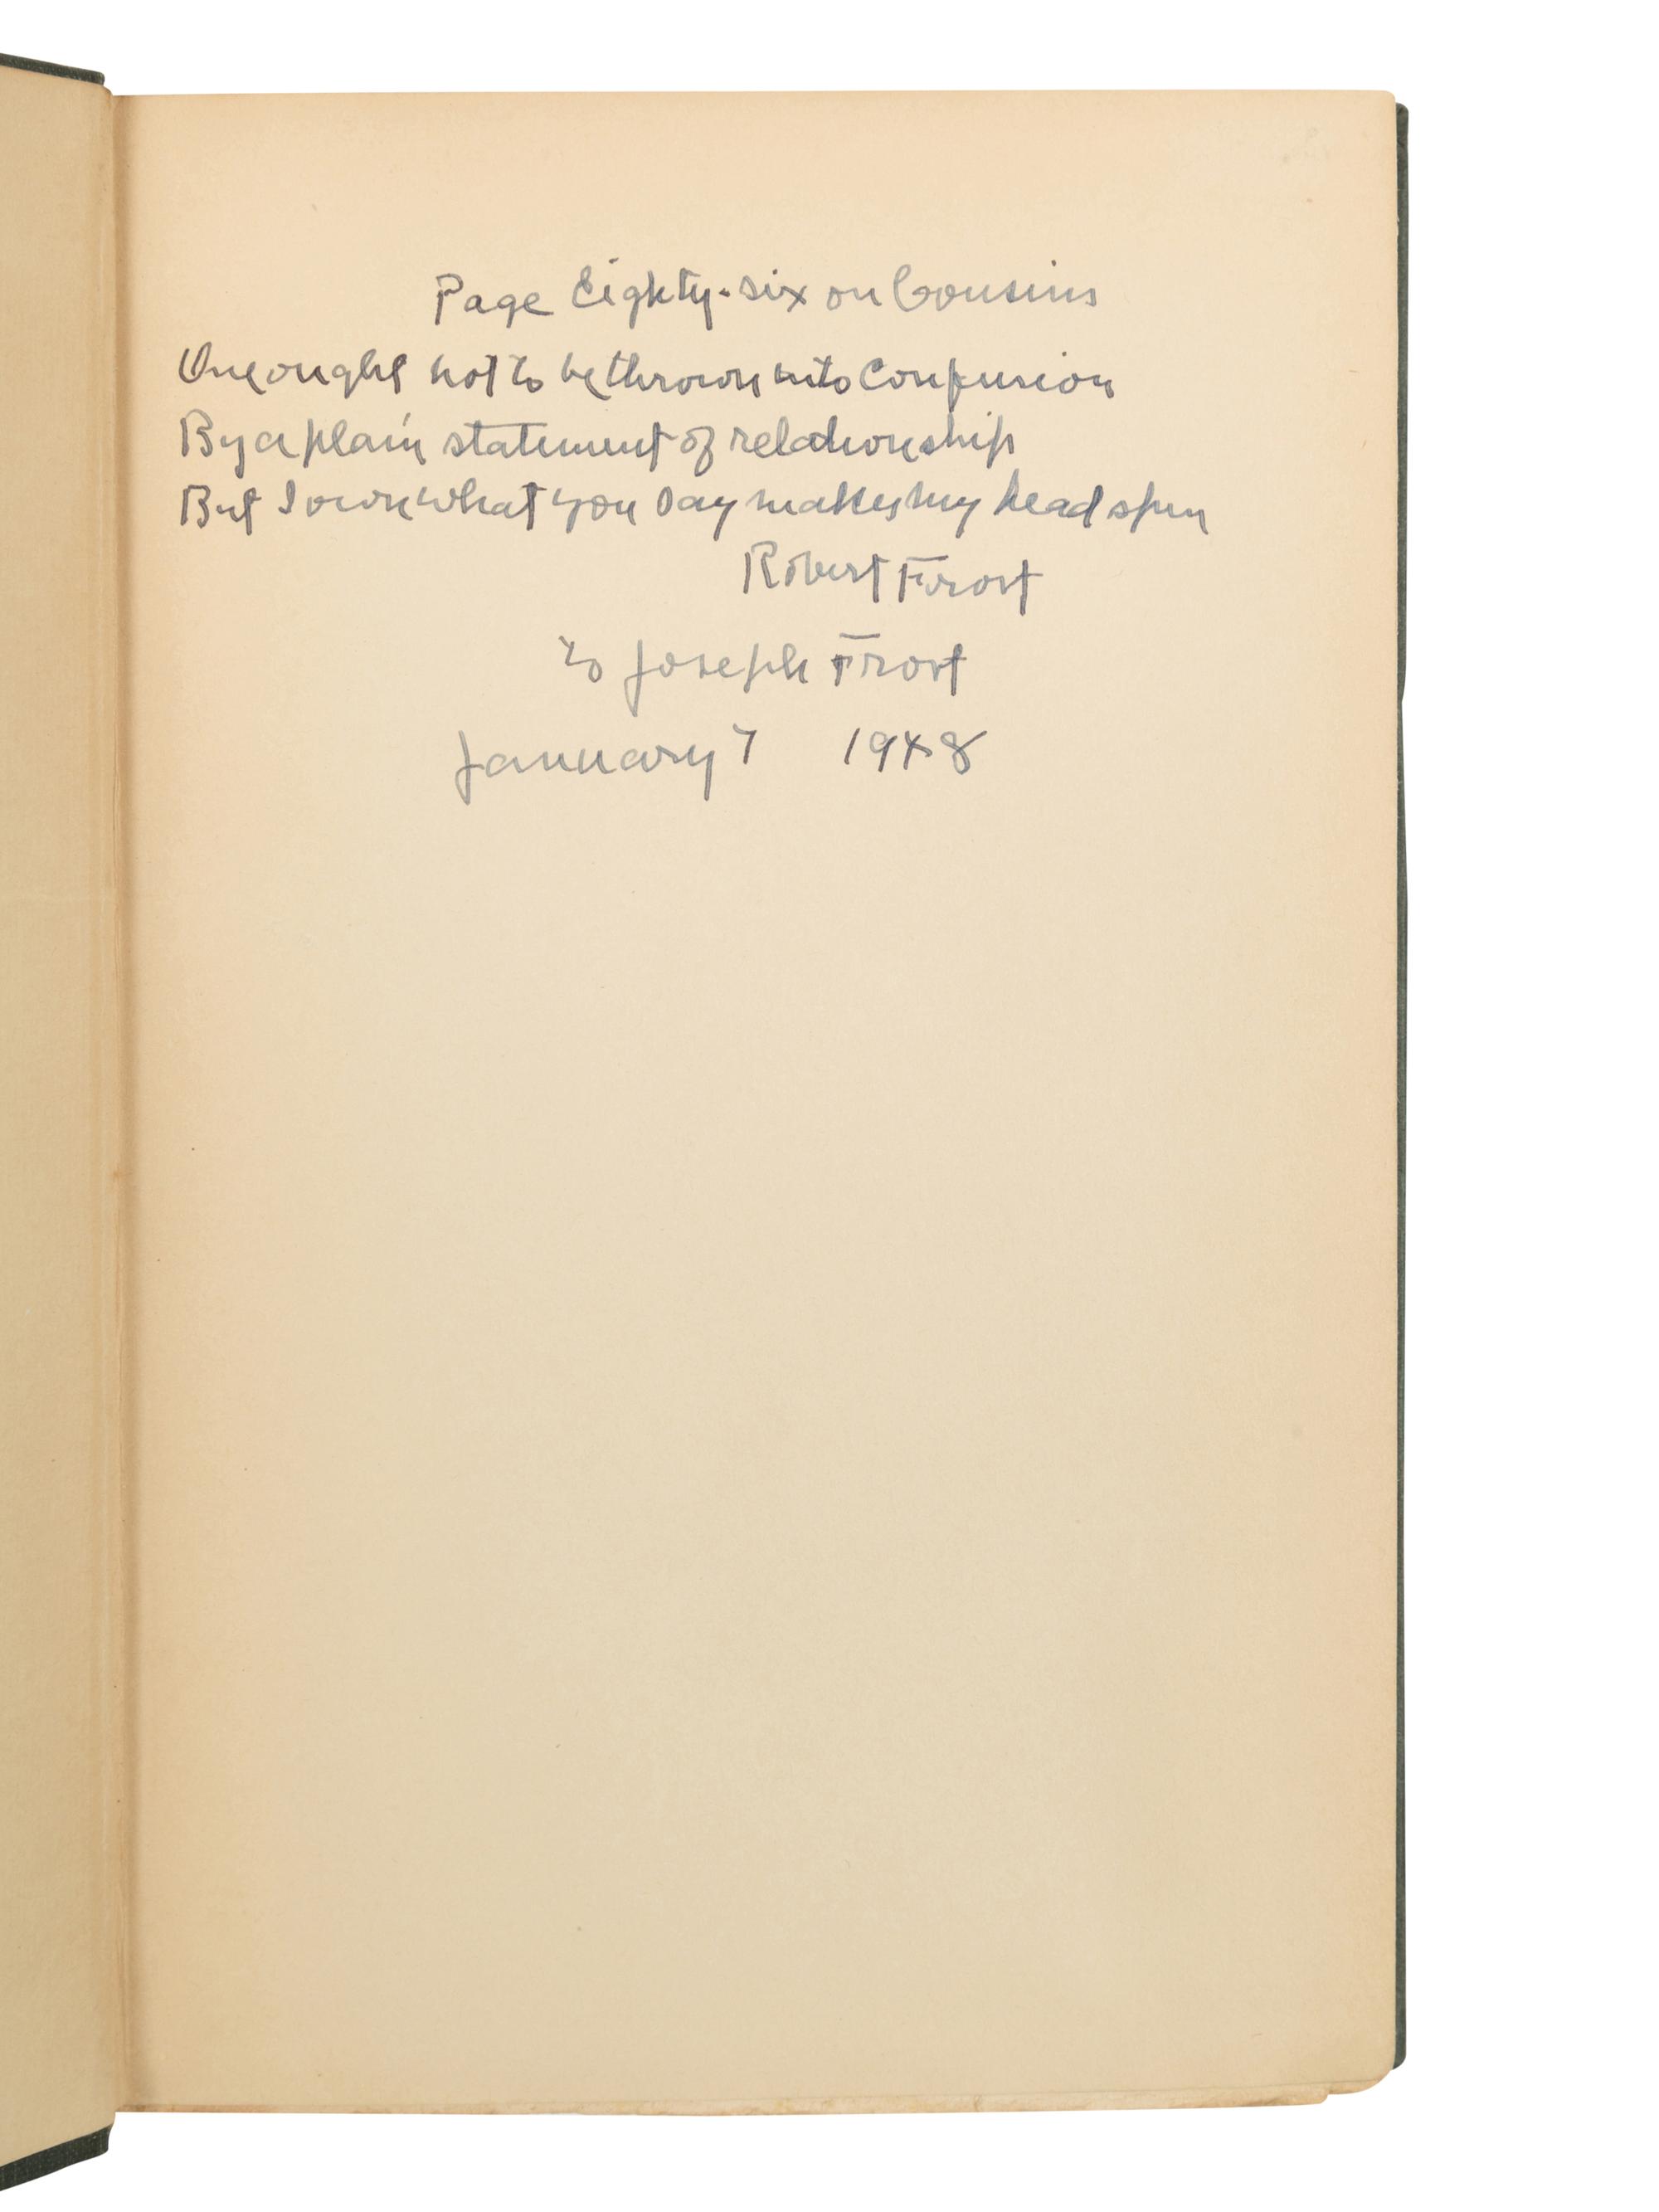 Page Eighty-six on Cousins
One ought not to be thrown into confusion
By a plain statement of relationship
But I own what you say makes my head spin
Robert Frost
to Joseph Frost
January 7 1948